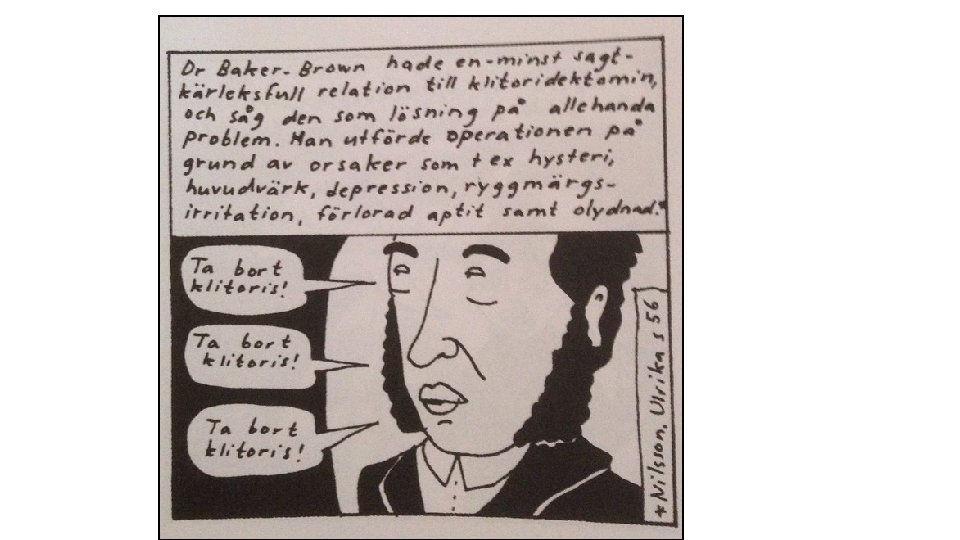 Dr Baker-Brown hade en-minst sagt-
kärleksfull relation till klitoridektomin,
och såg den som lösning på allehanda
problem. Han utförde operationen på
grund av orsaker som t ex hysteri,
huvudvärk, depression, ryggmärgs-
irritation, förlorad aptit samt olydnad.*
Ta bort
klitoris!
Ta bort
klitoris!
Ta bort
klitoris!
* Nilsson, Ulrika s 56